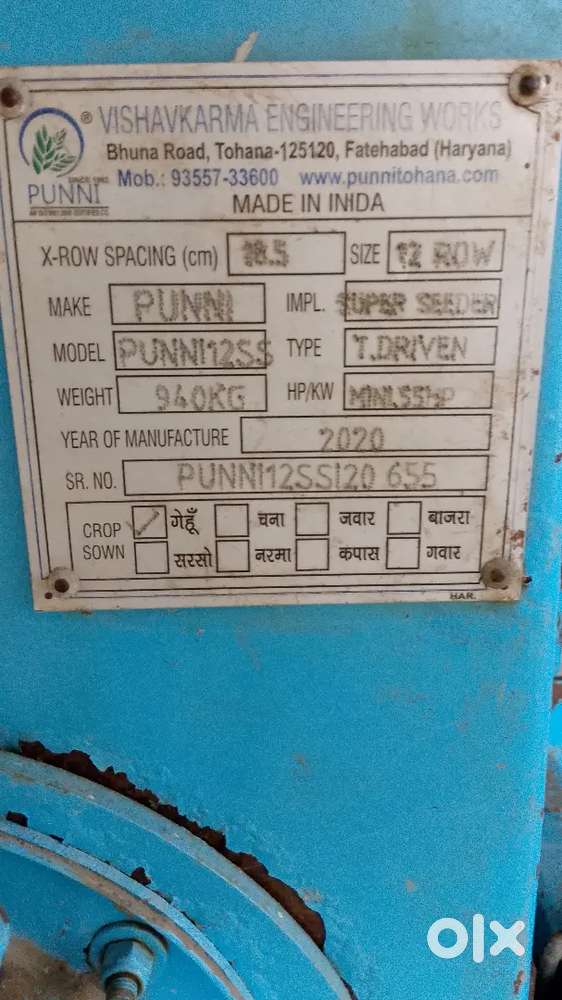 ® VISHAVKARMA ENGINEERING WORKS
Bhuna Road, Tohana-125120, Fatehabad (Haryana)
SINCE
PUNNI
Mob.: 93557-33600 www.punnitohana.com
MADE IN INIDA
X-ROW SPACING (cm) 18.5 SIZE 12 ROW
MAKE PUNNI IMPL. SUPER SEEDER
MODEL PUNNI12SS TYPE T.DRIVEN
WEIGHT 940KG HP/KW MINI.55HP
YEAR OF MANUFACTURE 2020
SR. NO. PUNNI12SSI20 655
CROP SOWN ✓ गेहूँ चना जवार बाजरा
सरसो नरमा कपास गवार
HAR.
olx